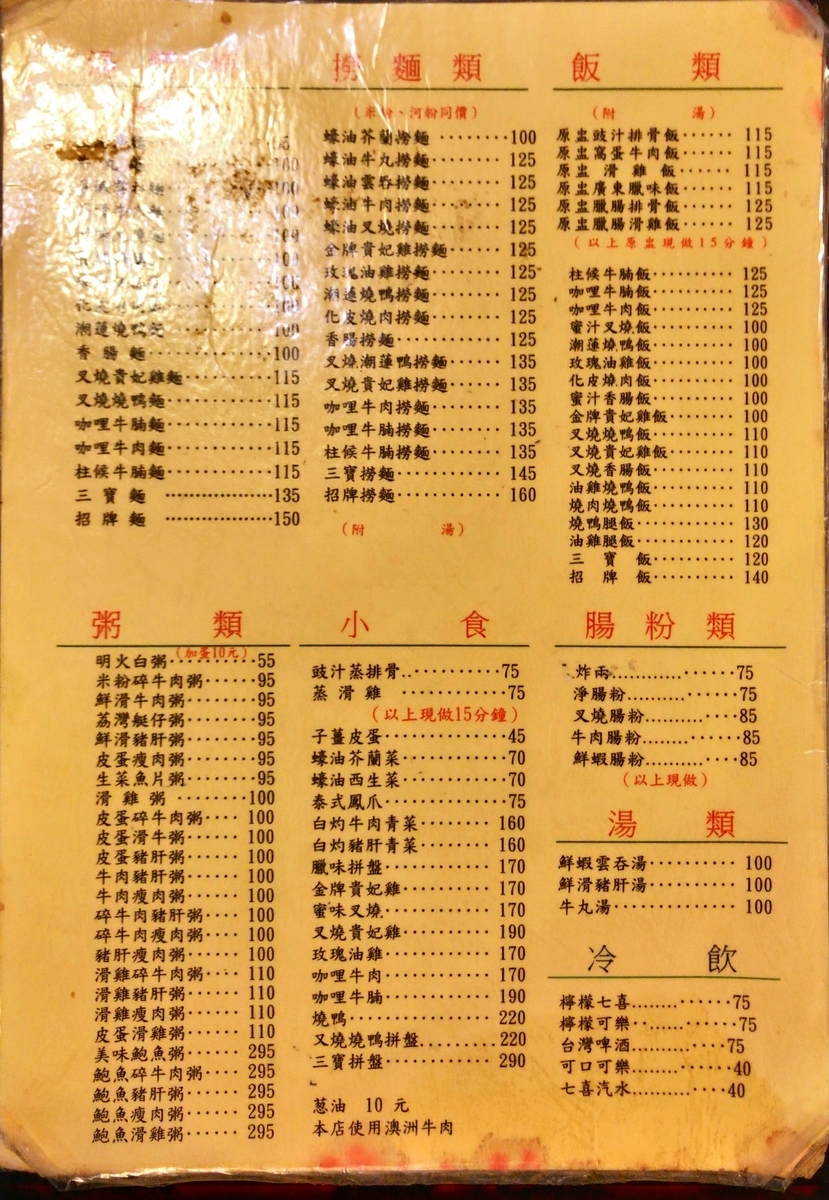 撈麵類
（米粉、河粉同價）
蠔油芥蘭撈麵 ········100
蠔油牛丸撈麵 ······ 125
蠔油雲吞撈麵 ······ 125
蠔油牛肉撈麵 ······ 125
蠔油叉燒撈麵 ······ 125
金牌貴妃雞撈麵····· 125
玫瑰油雞撈麵······· 125
潮蓮燒鴨撈麵······· 125
化皮燒肉撈麵······· 125
香腸撈麵·········· 125
叉燒潮蓮鴨撈麵····· 135
叉燒貴妃雞撈麵····· 135
咖哩牛肉撈麵······· 135
咖哩牛腩撈麵······· 135
柱候牛腩撈麵······· 135
三寶撈麵·········· 145
招牌撈麵·········· 160
（附 湯）
飯 類
（附 湯）
原盅豉汁排骨飯······ 115
原盅窩蛋牛肉飯······ 115
原盅 滑 雞 飯······ 115
原盅廣東臘味飯······ 115
原盅臘腸排骨飯······ 125
原盅臘腸滑雞飯······ 125
（以上原盅現做15分鐘）
柱候牛腩飯········· 125
咖哩牛腩飯········· 125
咖哩牛肉飯········· 125
蜜汁叉燒飯········· 100
潮蓮燒鴨飯········· 100
玫瑰油雞飯········· 100
化皮燒肉飯········· 100
蜜汁香腸飯········· 100
金牌貴妃雞飯······· 100
叉燒燒鴨飯········· 110
叉燒貴妃雞飯······· 110
叉燒香腸飯········· 110
油雞燒鴨飯········· 110
燒肉燒鴨飯········· 110
燒鴨腿飯·········· 130
油雞腿飯·········· 120
三 寶 飯········· 120
招 牌 飯········· 140
潮蓮燒鴨
香 腸 麵············100
叉燒貴妃雞麵·········115
叉燒燒鴨麵··········115
咖哩牛腩麵··········115
咖哩牛肉麵··········115
柱候牛腩麵··········115
三 寶 麵 ·················135
招 牌 麵 ·················150
粥 類
（加蛋10元）
明火白粥··········55
米粉碎牛肉粥······95
鮮滑牛肉粥·······95
荔灣艇仔粥·······95
鮮滑豬肝粥·······95
皮蛋瘦肉粥·······95
生菜魚片粥·······95
滑 雞 粥 ········100
皮蛋碎牛肉粥···· 100
皮蛋滑牛粥······ 100
皮蛋豬肝粥······ 100
牛肉豬肝粥······ 100
牛肉瘦肉粥······ 100
碎牛肉豬肝粥···· 100
碎牛肉瘦肉粥···· 100
豬肝瘦肉粥······ 100
滑雞碎牛肉粥···· 110
滑雞豬肝粥······ 110
滑雞瘦肉粥······ 110
皮蛋滑雞粥······ 110
美味鮑魚粥······ 295
鮑魚碎牛肉粥···· 295
鮑魚豬肝粥······ 295
鮑魚瘦肉粥······ 295
鮑魚滑雞粥······ 295
小 食
豉汁蒸排骨..··········75
蒸 滑 雞 ············75
（以上現做15分鐘）
子薑皮蛋············45
蠔油芥蘭菜··········70
蠔油西生菜··········70
泰式鳳爪············75
白灼牛肉青菜········ 160
白灼豬肝青菜········ 160
臘味拼盤··········· 170
金牌貴妃雞········· 170
蜜味叉燒··········· 170
叉燒貴妃雞········· 190
玫瑰油雞··········· 170
咖哩牛肉··········· 170
咖哩牛腩··········· 190
燒鴨·············· 220
叉燒燒鴨拼盤.........220
三寶拼盤··········· 290
蔥油 10 元
本店使用澳洲牛肉
腸粉類
炸兩............······75
淨腸粉..........······75
叉燒腸粉..........····85
牛肉腸粉........······85
鮮蝦腸粉..........····85
（以上現做）
湯 類
鮮蝦雲吞湯·········· 100
鮮滑豬肝湯·········· 100
牛丸湯·············· 100
冷 飲
檸檬七喜........······75
檸檬可樂··......······75
台灣啤酒..........····75
可口可樂........······40
七喜汽水..........····40